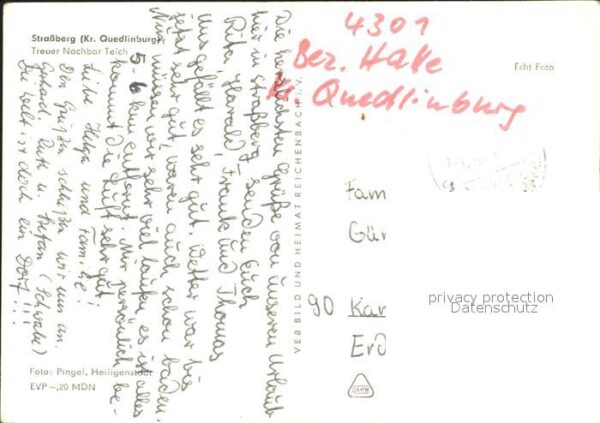 Straßberg (Kr. Quedlinburg)
Treuer Nachbar Teich
4301
Bez. Halle
Kr. Quedlinburg
Echt Foto
Die herzlichsten Grüße von unseren Urlaub
hier in Straßberg senden Euch
Rita, Harald, Frank und Thomas
Uns gefällt es sehr gut. Wetter war bis
jetzt sehr gut, waren auch schon baden.
Nur müssen wir sehr viel laufen, es ist alles
5-6 km entfernt. Mir persönlich be-
kommt die Luft sehr gut.
Liebe Helga und Familie!
Den Grüßen schließen wir uns an.
Gerhard, Ruth u. Stefan (Schwabe)
Die Welt ist doch ein Dorf!!!
VEB BILD UND HEIMAT REICHENBACH I. V.
Fam
Gür
90 Kar
Erd
privacy protection
Datenschutz
Foto: Pingel, Heiligenstadt
EVP -,20 MDN